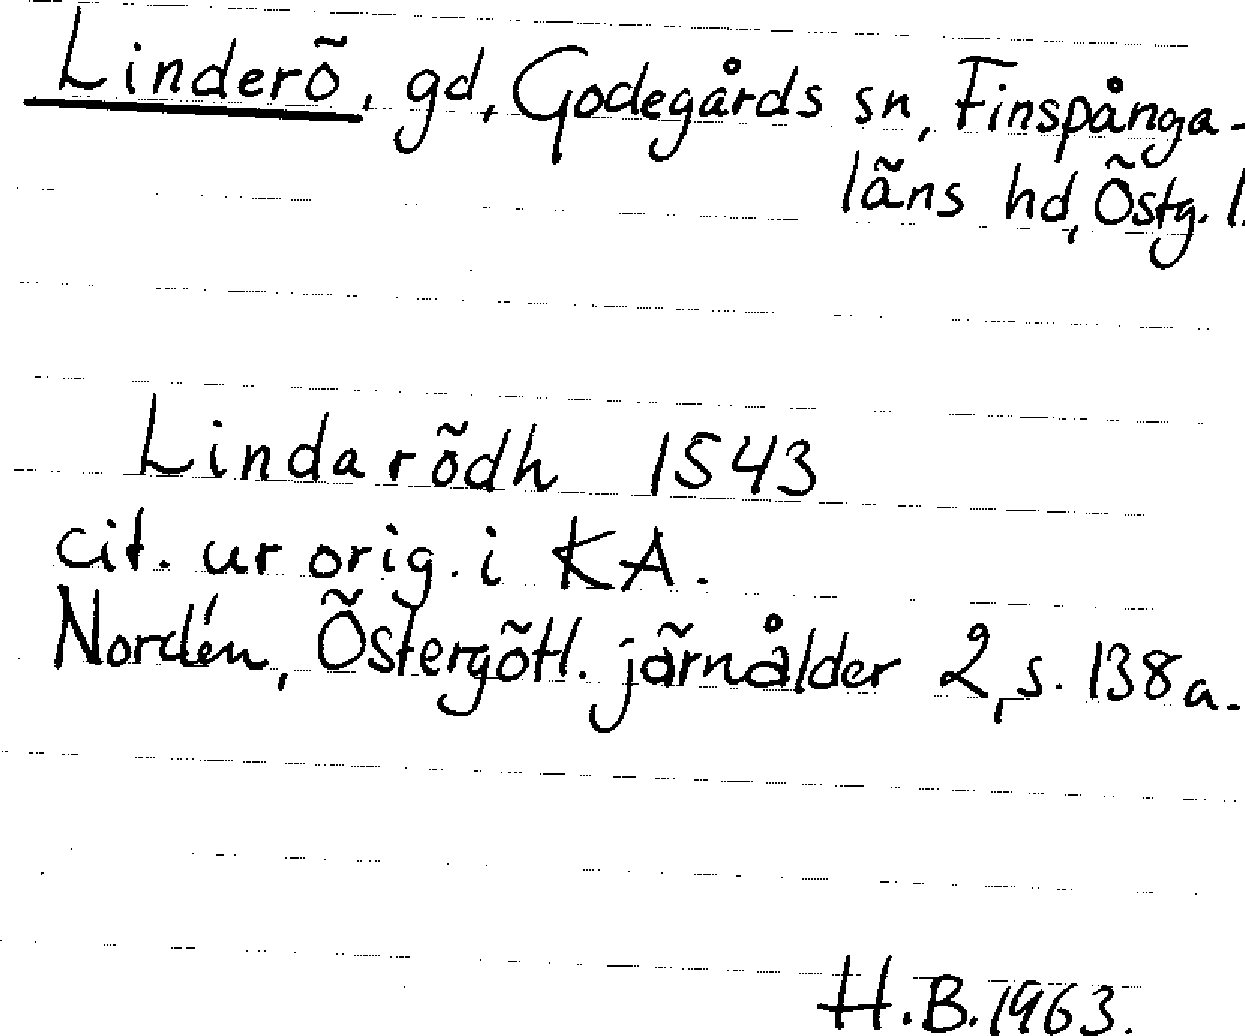 Linderö, gd, Godegårds sn, Finspånga-
läns hd, Östg. l.
Lindarödh 1543
cit. ur orig. i KA.
Nordén, Östergötl. järnålder 2, s. 138a.
H.B. 1963.